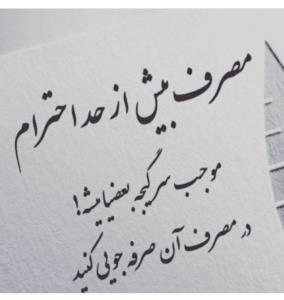 مصرف بیش از حد احترام
موجب سرگیجه بعضیا میشه!
در مصرف آن صرفه جویی کنید